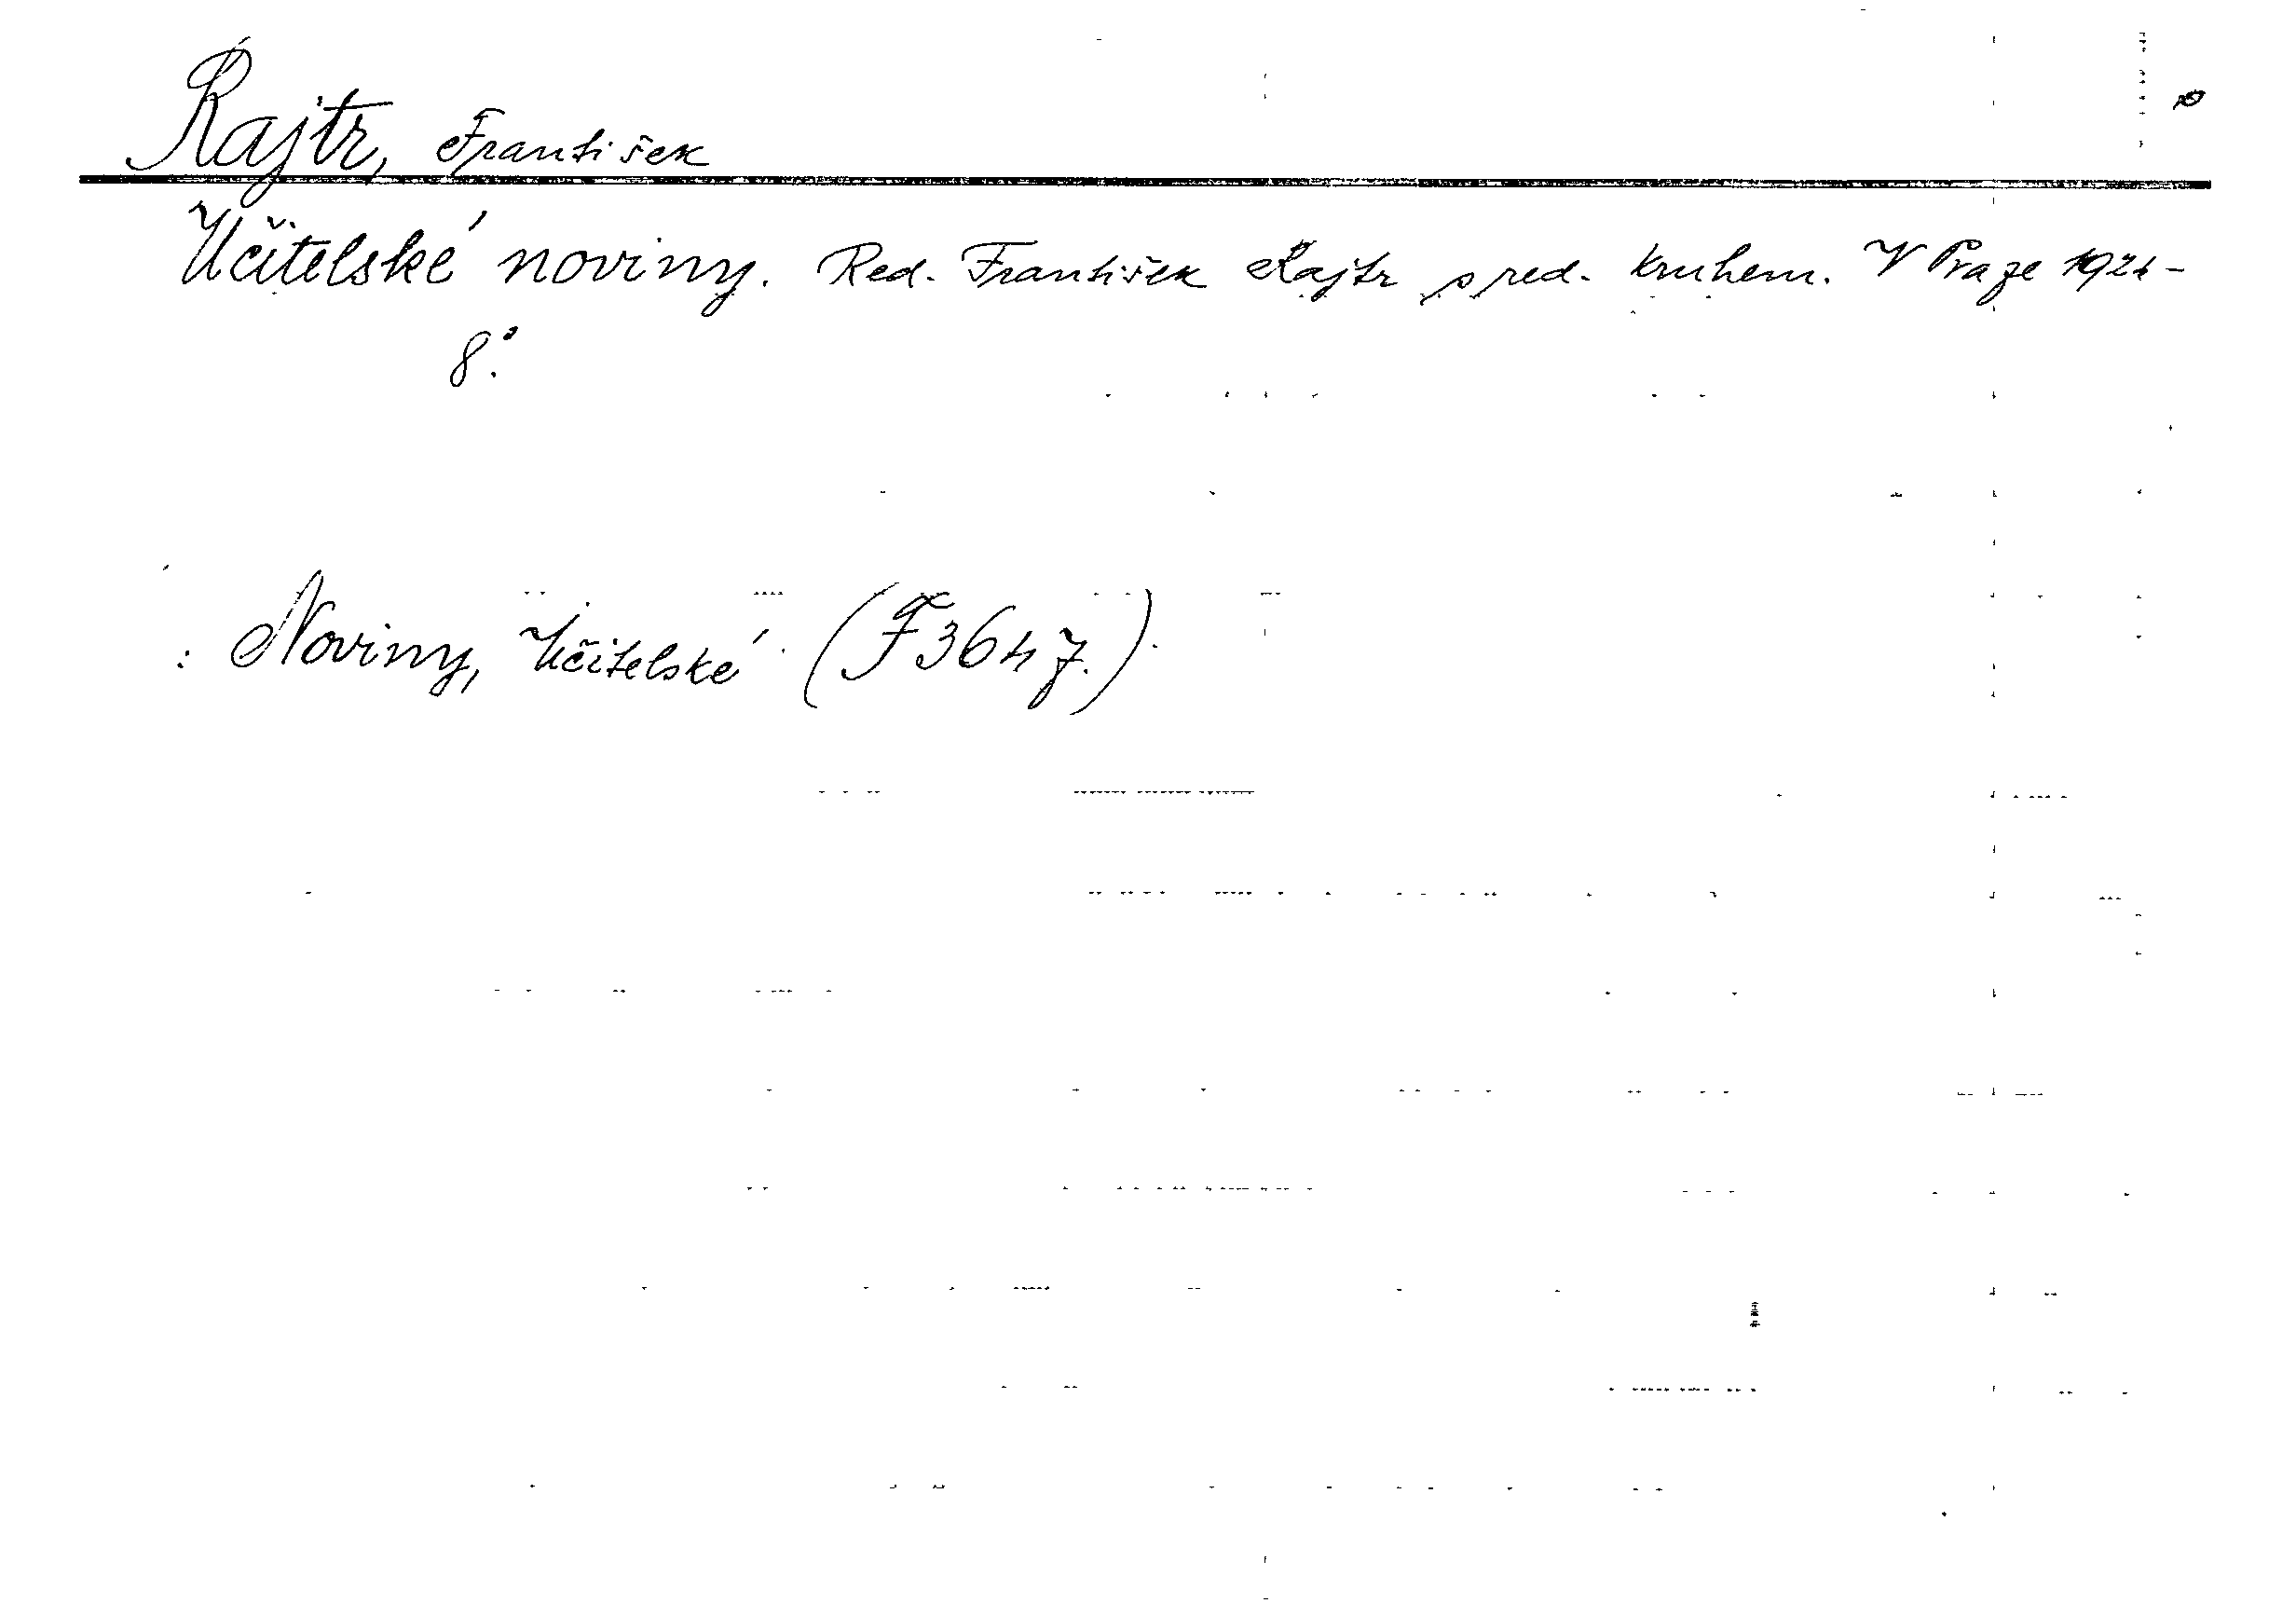 Rajtr, František
Učitelské noviny. Red. František Rajtr s red. kruhem. V Praze 1921-
8°.
: Noviny, Učitelské (F 3647.).